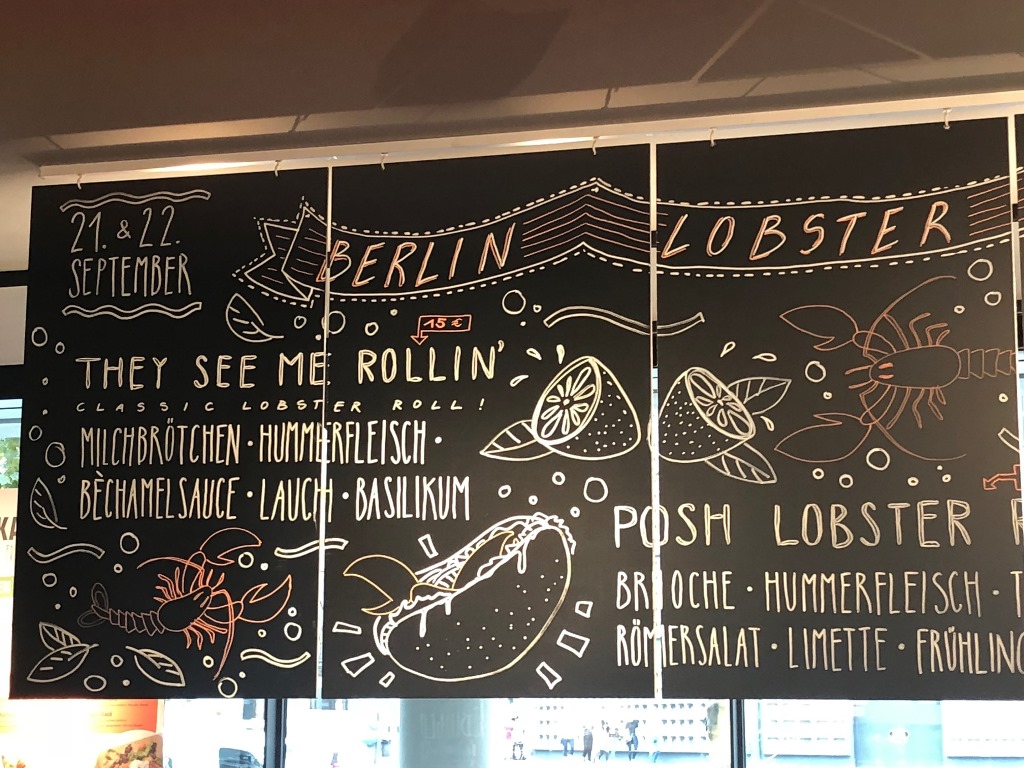 21. & 22.
SEPTEMBER
BERLIN LOBSTER
15 €
THEY SEE ME ROLLIN'
CLASSIC LOBSTER ROLL!
MILCHBRÖTCHEN · HUMMERFLEISCH ·
BÈCHAMELSAUCE · LAUCH · BASILIKUM
POSH LOBSTER R
BRIOCHE · HUMMERFLEISCH · T
RÖMERSALAT · LIMETTE · FRÜHLING